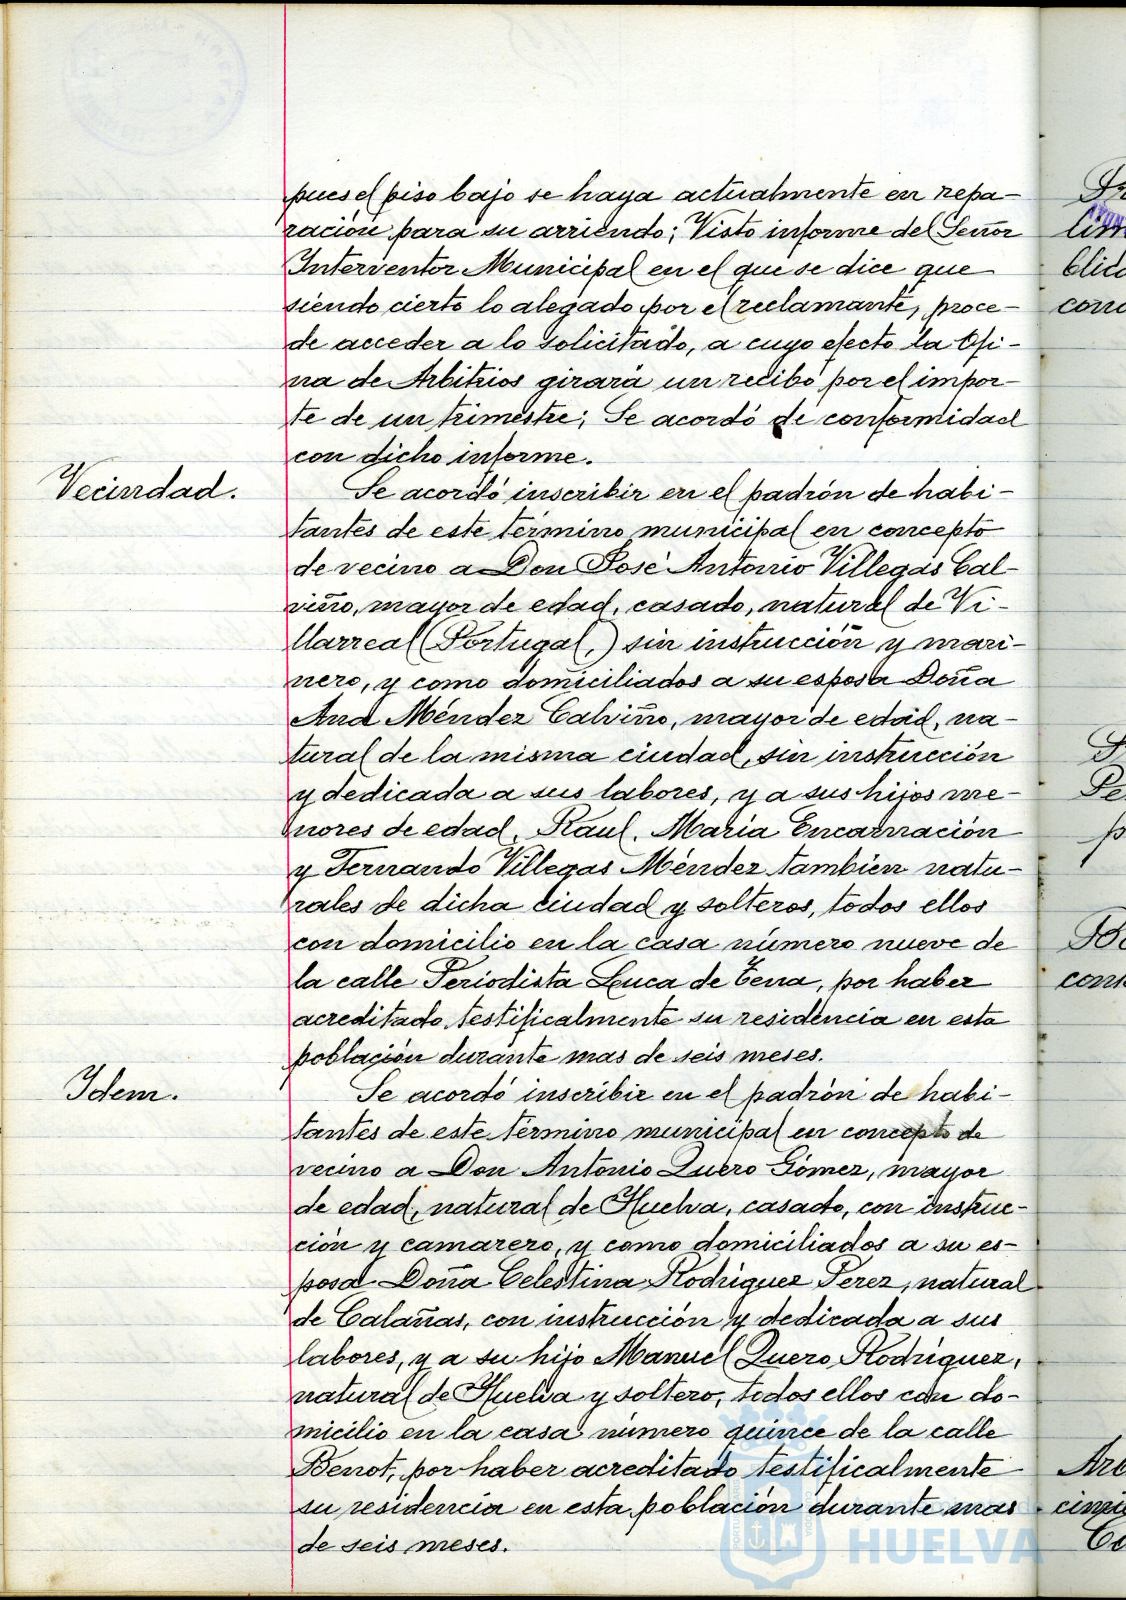 pues el piso bajo se haya actualmente en repa-
ración para su arriendo; Visto informe del Señor
Interventor Municipal en el que se dice que
siendo cierto lo alegado por el reclamante, proce-
de acceder a lo solicitado, a cuyo efecto la Ofi-
na de Arbitrios girará un recibo por el impor-
te de un trimestre; Se acordó de conformidad
con dicho informe.
Vecindad.
Se acordó inscribir en el padrón de habi-
tantes de este término municipal en concepto
de vecino a Don José Antonio Villegas Cal-
viño, mayor de edad, casado, natural de Vi-
llarreal (Portugal,) sin instrucción y mari-
nero, y como domiciliados a su esposa Doña
Ana Méndez Calviño, mayor de edad, na-
tural de la misma ciudad, sin instrucción
y dedicada a sus labores, y a sus hijos me-
nores de edad, Raul, Maria Encarnación
y Fernando Villegas Méndez tambien natu-
rales de dicha ciudad y solteros, todos ellos
con domicilio en la casa número nueve de
la calle Periodista Luca de Tena, por haber
acreditado testificalmente su residencia en esta
población durante mas de seis meses.
Idem.
Se acordó inscribir en el padrón de habi-
tantes de este término municipal en concepto de
vecino a Don Antonio Quero Gómez, mayor
de edad, natural de Huelva, casado, con instruc-
ción y camarero, y como domiciliados a su es-
posa Doña Celestina Rodriguez Perez, natural
de Calañas, con instrucción y dedicada a sus
labores, y a su hijo Manuel Quero Rodriguez,
natural de Huelva y soltero, todos ellos con do-
micilio en la casa número quince de la calle
Benot, por haber acreditado testificalmente
su residencia en esta población durante mas
de seis meses.
HUELVA